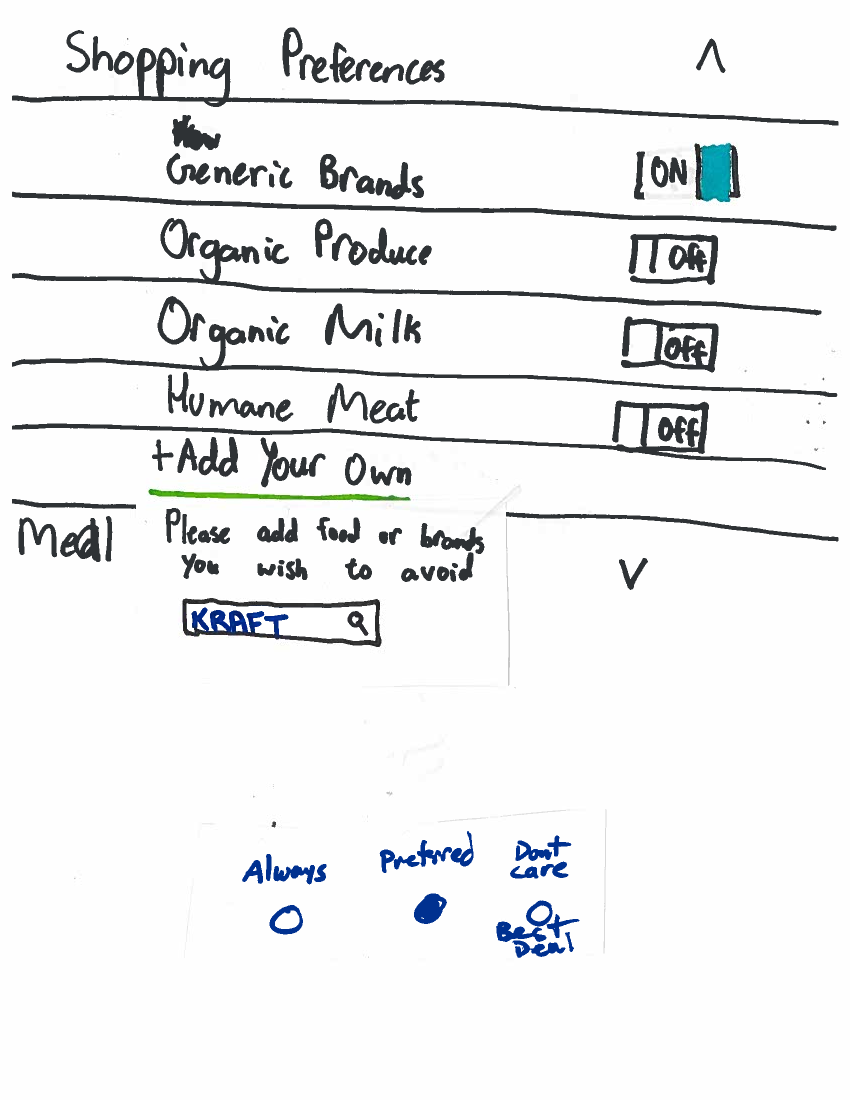 Shopping Preferences
Generic Brands ON
Organic Produce Off
Organic Milk Off
Humane Meat Off
+Add Your Own
Please add food or brands
you wish to avoid
KRAFT
Always Preferred Dont care
Best Deal